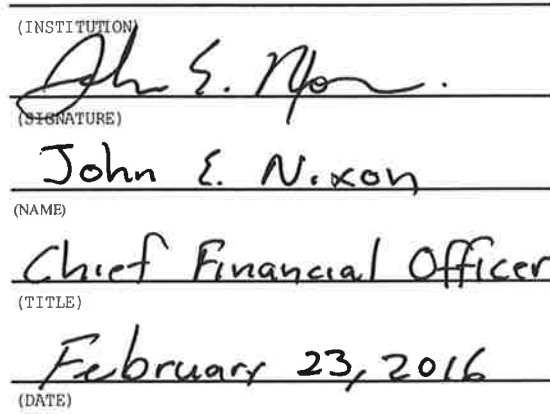 (INSTITUTION)
John E. Nixon
(SIGNATURE)
John E. Nixon
(NAME)
Chief Financial Officer
(TITLE)
February 23, 2016
(DATE)